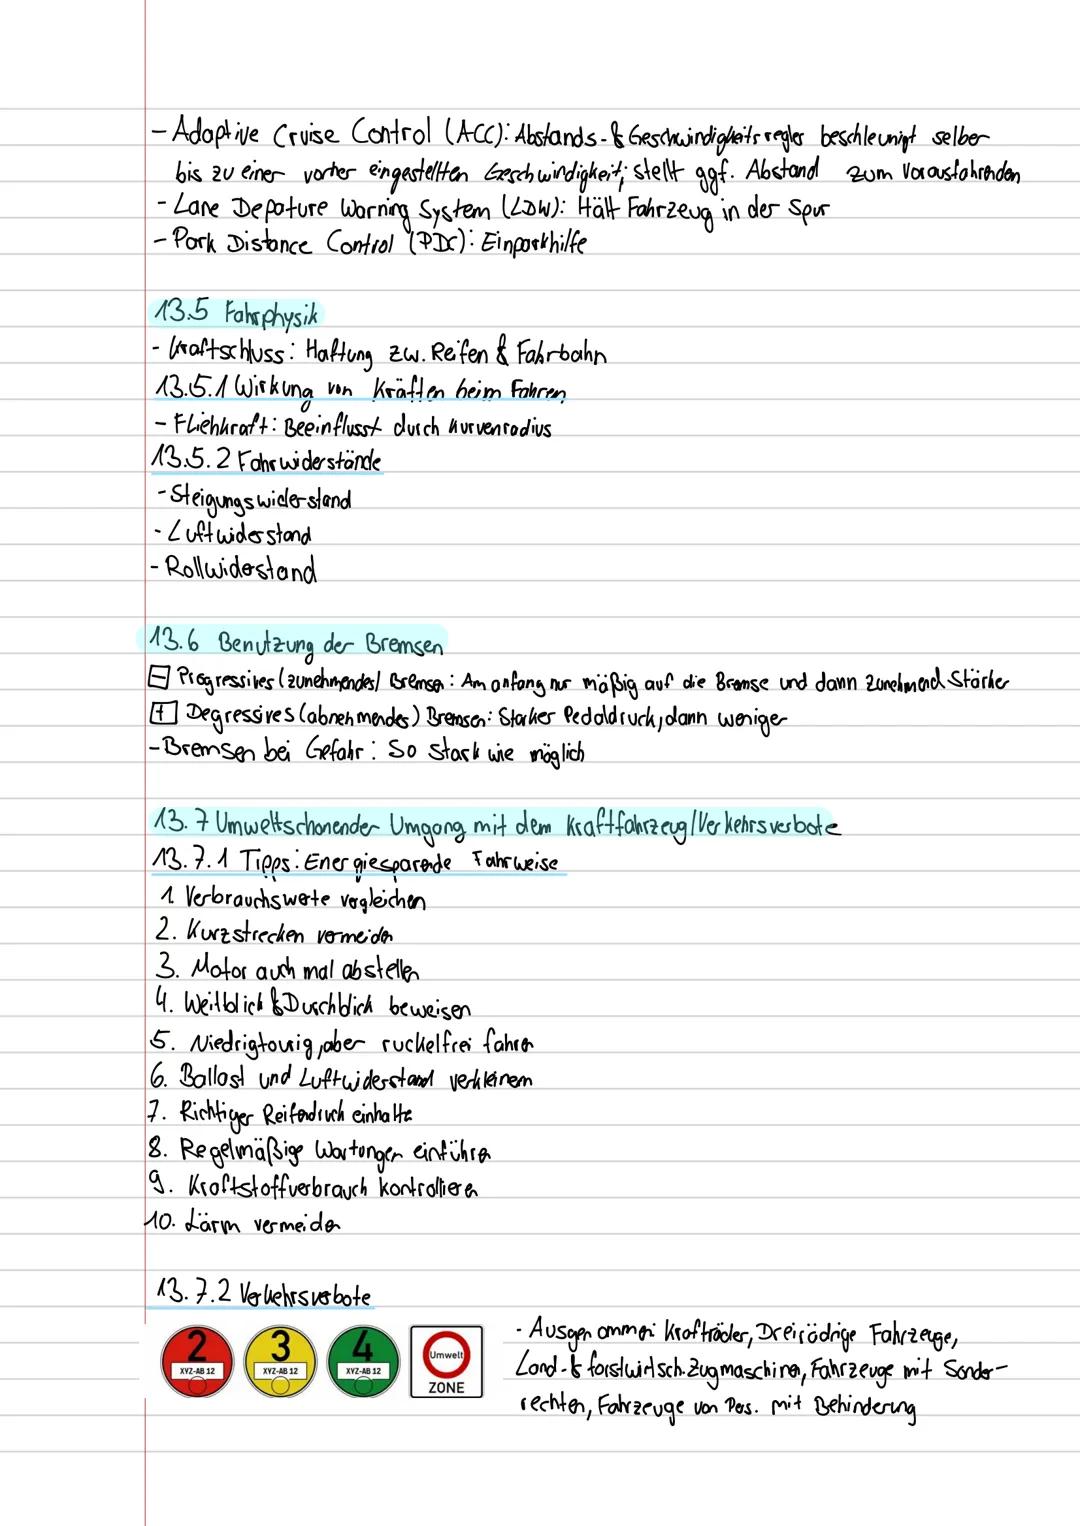 - Adaptive Cruise Control (ACC): Abstands- & Geschwindigkeitsregler beschleunigt selber
bis zu einer vorher eingestellten Geschwindigkeit; stellt ggf. Abstand zum Vorausfahrenden
- Lane Depature Warning System (LDW): Hält Fahrzeug in der Spur
- Park Distance Control (PDC): Einparkhilfe
13.5 Fahrphysik
- Kraftschluss: Haftung zw. Reifen & Fahrbahn
13.5.1 Wirkung von Kräften beim Fahren
- Fliehkraft: Beeinflusst durch Kurvenradius
13.5.2 Fahrwiderstände
- Steigungswiderstand
- Luftwiderstand
- Rollwiderstand
13.6 Benutzung der Bremsen
- Progressives (zunehmendes) Bremsen: Am anfang nur mäßig auf die Bremse und dann zunehmend Stärker
+ Degressives (abnehmendes) Bremsen: Starker Pedaldruck, dann weniger
- Bremsen bei Gefahr: So stark wie möglich
13.7 Umweltschonender Umgang mit dem Kraftfahrzeug/Verkehrsverbote
13.7.1 Tipps: Energiesparende Fahrweise
1. Verbrauchswerte vergleichen
2. Kurzstrecken vermeiden
3. Motor auch mal abstellen
4. Weitblick & Durchblick beweisen
5. Niedrigtourig, aber ruckelfrei fahren
6. Ballast und Luftwiderstand verkleinern
7. Richtiger Reifendruck einhalten
8. Regelmäßige Wartungen einführen
9. Kraftstoffverbrauch kontrollieren
10. Lärm vermeiden
13.7.2 Verkehrsverbote
2 3 4
XYZ-AB 12 XYZ-AB 12 XYZ-AB 12
Umwelt
ZONE
- Ausgenommen Krafträder, Dreirädrige Fahrzeuge,
Land- & forstwirtsch. Zugmaschinen, Fahrzeuge mit Sonder-
rechten, Fahrzeuge von Pers. mit Behinderung